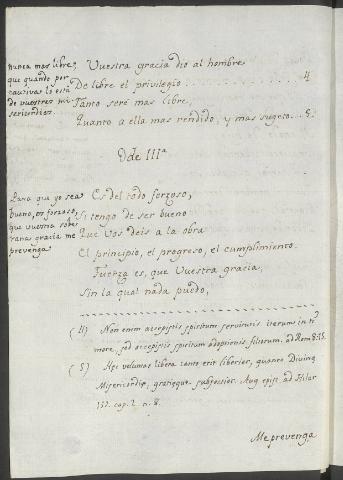 nunca mas libre,
que quando por
cautiva lo està
de vuestras mi
sericordias.
Vuestra gracia dio al hombre
De libre el privilegio . . . . . . . . . . . . 4
Tanto seré mas libre,
Quanto a ella mas rendido, y mas sugeto. . . 5.
Ode IIIª
Para que yo sea
bueno, es forzoso,
que vuestra sobe
rana gracia me
prevenga.
Es del todo forzoso,
Si tengo de ser bueno
Que Vos deis a la obra
El principio, el progreso, el cumplimiento.
Fuerza es, que Vuestra gracia,
Sin la qual nada puedo,
(4) Non enim accepistis spiritum servitutis iterum in ti
more, sed accepistis spiritum adoptionis filiorum. ad Rom 8.15.
(5) voluntas libera tanto erit liberior, quanto Divinę
Misericordię, gratięque subjectior. Aug. epist. ad Hilar
157. cap. 2. n. 8.
Me prevenga